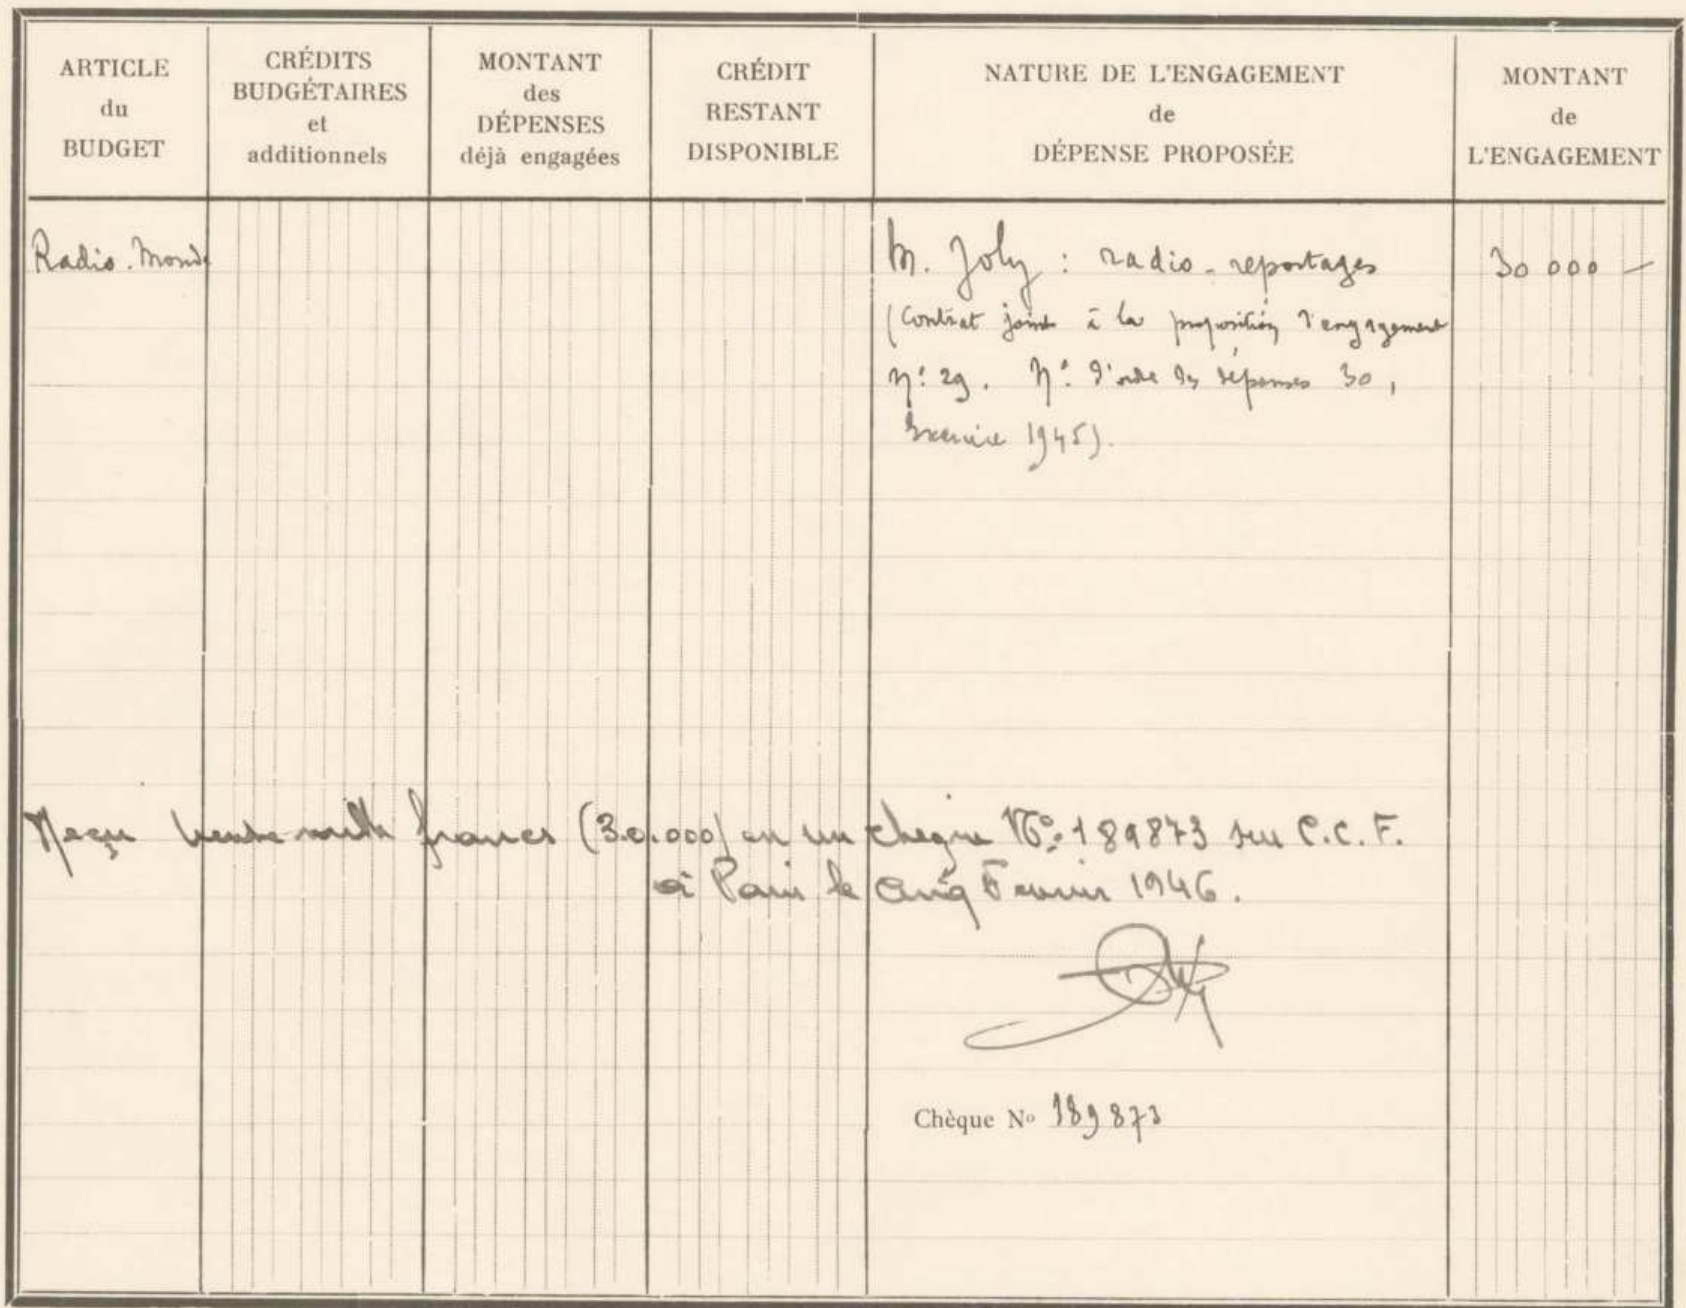 ARTICLE
du
BUDGET
CRÉDITS
BUDGÉTAIRES
et
additionnels
MONTANT
des
DÉPENSES
déjà engagées
CRÉDIT
RESTANT
DISPONIBLE
NATURE DE L'ENGAGEMENT
de
DÉPENSE PROPOSÉE
MONTANT
de
L'ENGAGEMENT
Radio-Monde
M. Joly : radio-reportages
30 000 —
(Contrat joint à la proposition d'engagement
N° 29. N° d'ordre des dépenses 30,
Exercice 1945).
Reçu trente mille francs (30.000) en un chèque N° 189873 sur C.C.F.
à Paris le cinq Février 1946.
Chèque N° 189873